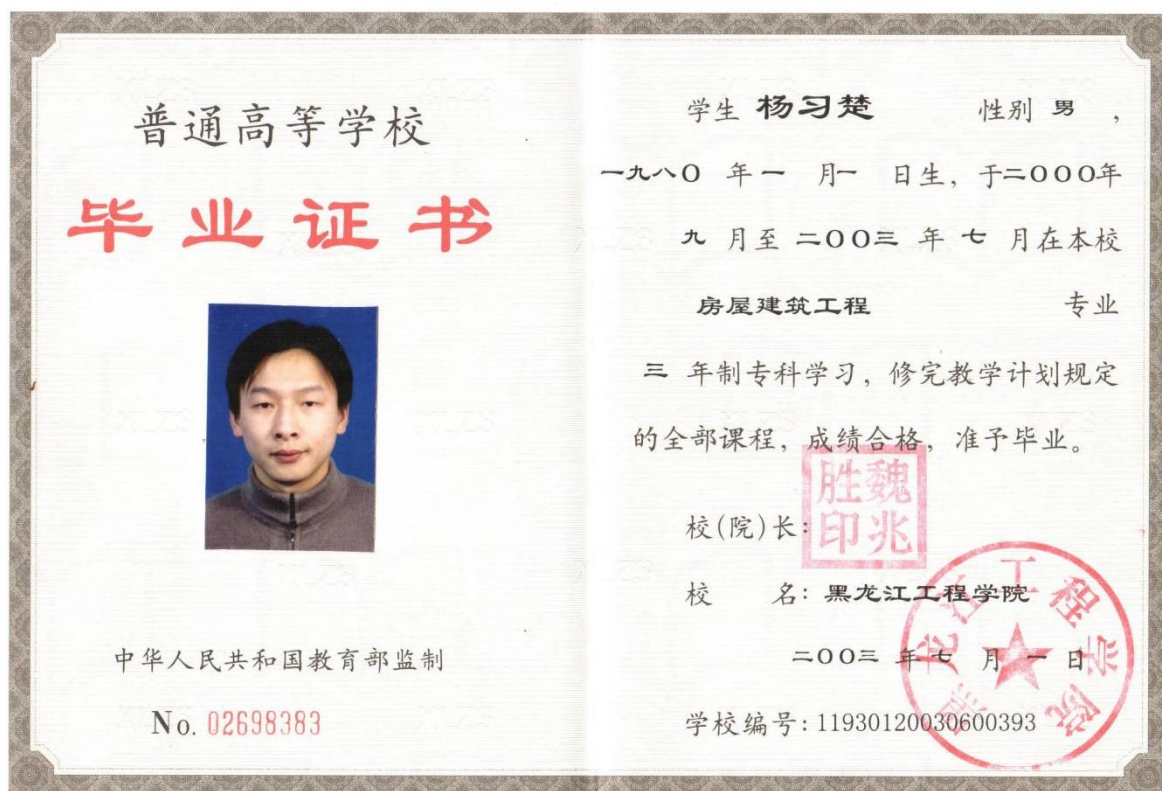 普通高等学校
毕业证书
中华人民共和国教育部监制
No. 02698383
学生 杨习楚 性别 男 ,
一九八〇 年 一 月一 日生, 于二〇〇〇年
九 月至 二〇〇三 年 七 月在本校
房屋建筑工程 专业
三 年制专科学习, 修完教学计划规定
的全部课程, 成绩合格, 准予毕业。
魏兆胜印
校(院)长:
校 名: 黑龙江工程学院
二〇〇三 年 七 月 一 日
学校编号: 11930120030600393
黑龙江工程学院